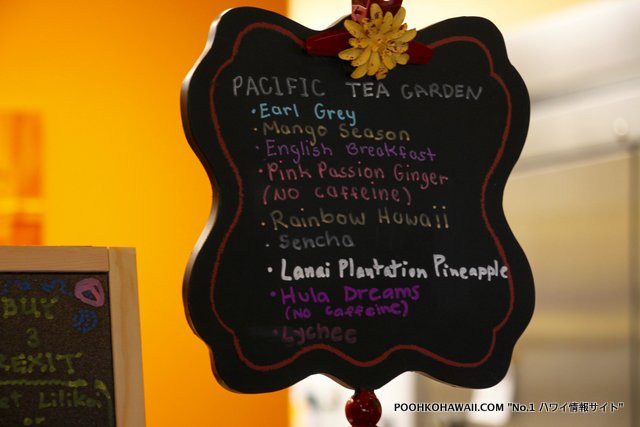 PACIFIC TEA GARDEN
• Earl Grey
• Mango Season
• English Breakfast
• Pink Passion Ginger
(NO caffeine)
• Rainbow Hawaii
• Sencha
• Lanai Plantation Pineapple
• Hula Dreams
(NO caffeine)
• Lychee
BUY
3
REXIT
Liliko
or
POOHKOHAWAII.COM "No.1 ハワイ情報サイト"